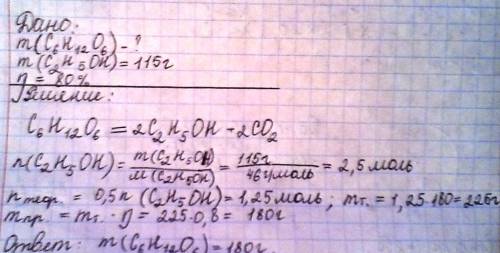 Дано:
m(C₆H₁₂O₆) - ?
m(C₂H₅OH) = 115г
η = 80%
Решение:
C₆H₁₂O₆ = 2C₂H₅OH + 2CO₂
n(C₂H₅OH) = m(C₂H₅OH)/M(C₂H₅OH) = 115г/46г/моль = 2,5 моль
nтеор. = 0,5n (C₂H₅OH) = 1,25 моль; mт. = 1,25·180 = 225г
mпр. = mт. · η = 225·0,8 = 180г
Ответ: m(C₆H₁₂O₆) = 180г.